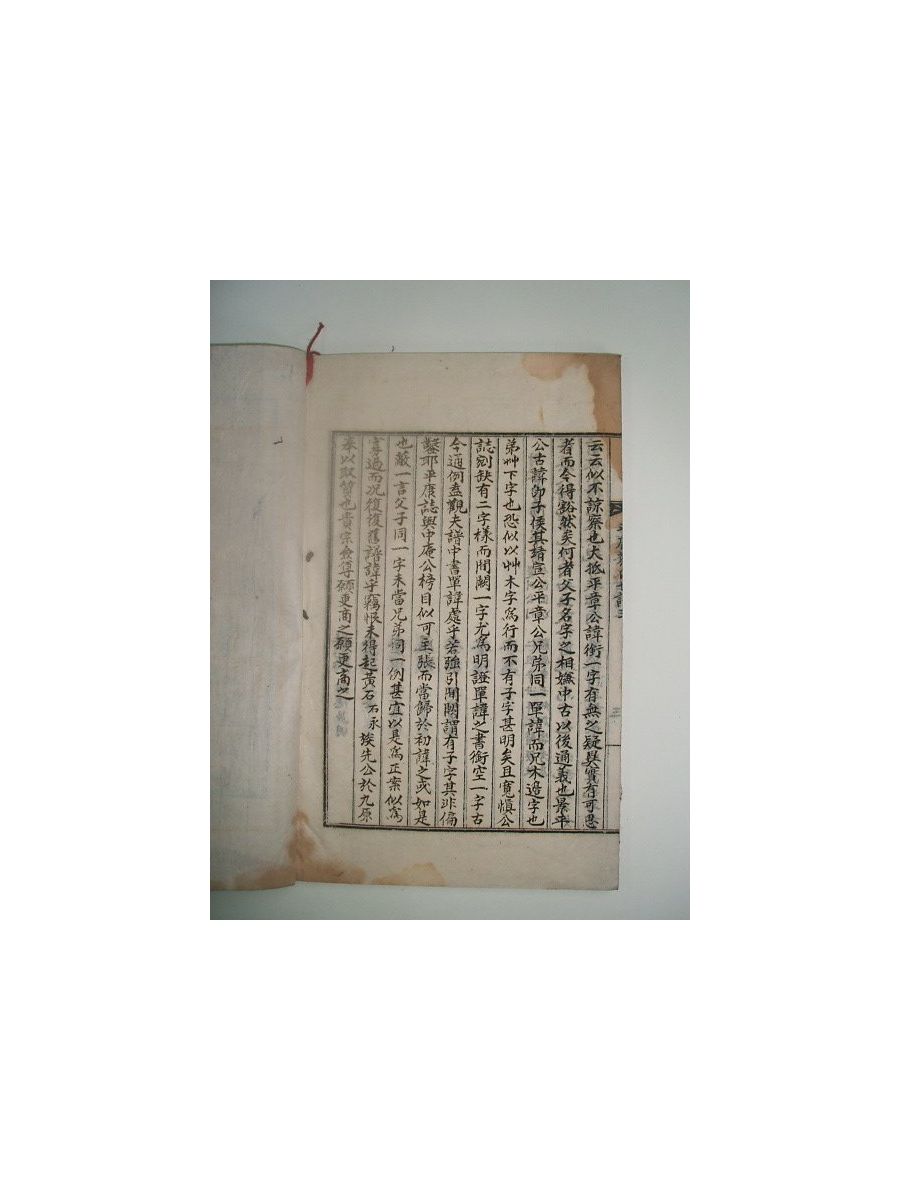 云云似不諒察也大抵平章公諱衔一字有無之疑具實有可思
者而今得豁然矣何者父子名字之相嫵中古以後通義也景平
公古諱卽子侯其靖宣公平章公兄弟同一單諱而兄木邉字也
弟艸下字也恐似以艸木字爲行而不有子字甚明矣且寬愼公
誌刓缺有二字樣而閒闕一字尤爲明證單諱之書衔空一字古
今通例盍觀夫譜中書單諱處乎若强引閒闕謂有子字其非偏
鑿耶平度誌與中庵公榜目似可主張而當歸於初諱之或如是
也蔽一言父子同一字未當兄弟同一例甚宜以是爲正案似爲
寡過而况復復舊譜諱乎竊恨未得起黃石不永埃先公於九原
奉以取質也貴宗僉尊願更商之願更商之
三